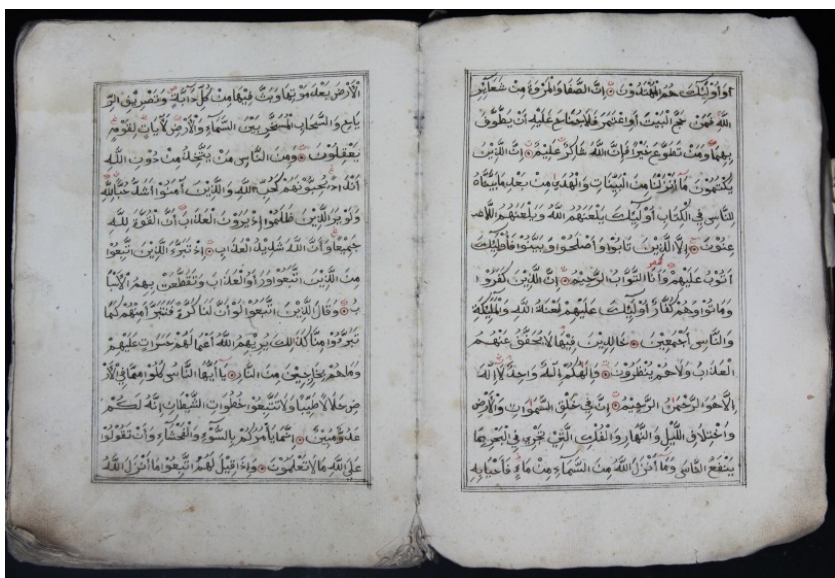 وأولئك هم المهتدون إن الصفا والمروة من شعائر
الله فمن حج البيت أو اعتمر فلا جناح عليه أن يطوف
بهما ومن تطوع خيرا فإن الله شاكر عليم إن الذين
يكتمون ما أنزلنا من البينات والهدى من بعد ما بيناه
للناس في الكتاب أولئك يلعنهم الله ويلعنهم اللا
عنون إلا الذين تابوا وأصلحوا وبينوا فأولئك
أتوب عليهم وأنا التواب الرحيم إن الذين كفروا
وماتوا وهم كفار أولئك عليهم لعنة الله والملئكة
والناس أجمعين خالدين فيها لا يخفف عنهم
العذاب ولا هم ينظرون وإلهكم إله واحد لا إله
إلا هو الرحمن الرحيم إن في خلق السموات والأرض
واختلاف الليل والنهار والفلك التي تجري في البحر بما
ينفع الناس وما أنزل الله من السماء من ماء فأحيا به
الأرض بعد موتها وبث فيها من كل دابة وتصريف الر
ياح والسحاب المسخر بين السماء والأرض لآيات لقوم
يعقلون ومن الناس من يتخذ من دون الله
أندادا يحبونهم كحب الله والذين آمنوا أشد حبا لله
ولو يرى الذين ظلموا إذ يرون العذاب أن القوة لله
جميعا وأن الله شديد العذاب إذ تبرأ الذين اتبعوا
من الذين اتبعوا ورأوا العذاب وتقطعت بهم الأسبا
ب وقال الذين اتبعوا لو أن لنا كرة فنتبرأ منهم كما
تبرءوا منا كذلك يريهم الله أعمالهم حسرات عليهم
وما هم بخارجين من النار يا أيها الناس كلوا مما في الأر
ض حلالا طيبا ولا تتبعوا خطوات الشيطان إنه لكم
عدو مبين إنما يأمركم بالسوء والفحشاء وأن تقولوا
على الله ما لا تعلمون وإذا قيل لهم اتبعوا ما أنزل الله